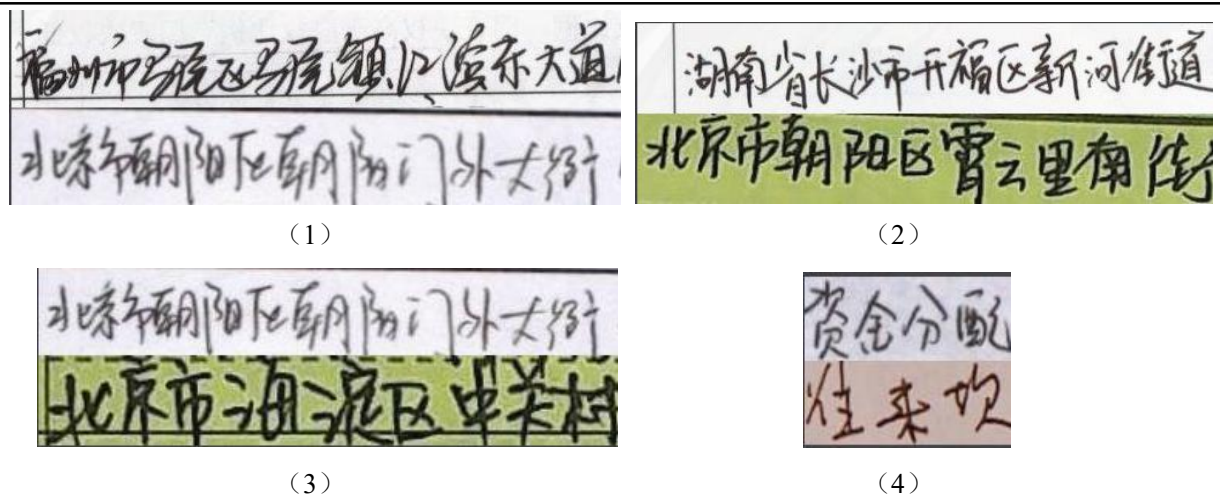 福州市马尾区马尾镇江滨东大道
北京市朝阳区朝阳门外大街
(1)
湖南省长沙市开福区新河街道
北京市朝阳区霄云里南街
(2)
北京市朝阳区朝阳门外大街
北京市海淀区中关村
(3)
资金分配
往来
(4)